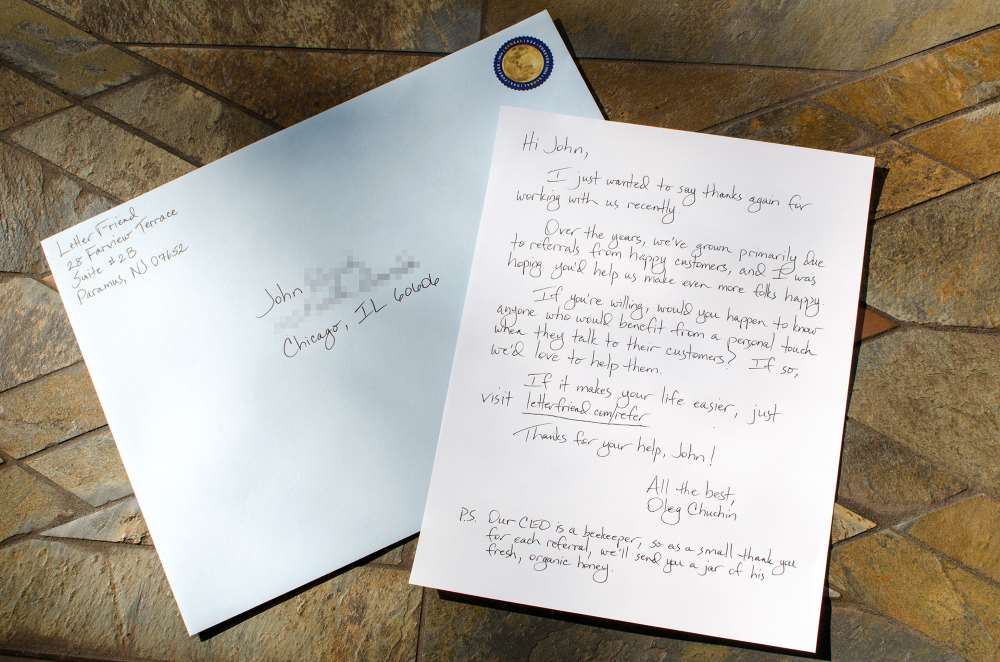 Letter Friend
28 Fairview Terrace
Suite #2B
Paramus, NJ 07652
John
Chicago, IL 60606
Hi John,
I just wanted to say thanks again for
working with us recently
Over the years, we've grown primarily due
to referrals from happy customers, and I was
hoping you'd help us make even more folks happy.
If you're willing, would you happen to know
anyone who would benefit from a personal touch
when they talk to their customers? If so,
we'd love to help them.
If it makes your life easier, just
visit letterfriend.com/refer
Thanks for your help, John!
All the best,
Oleg Chuchin
P.S. Our CEO is a beekeeper, so as a small thank you
for each referral, we'll send you a jar of his
fresh, organic honey.